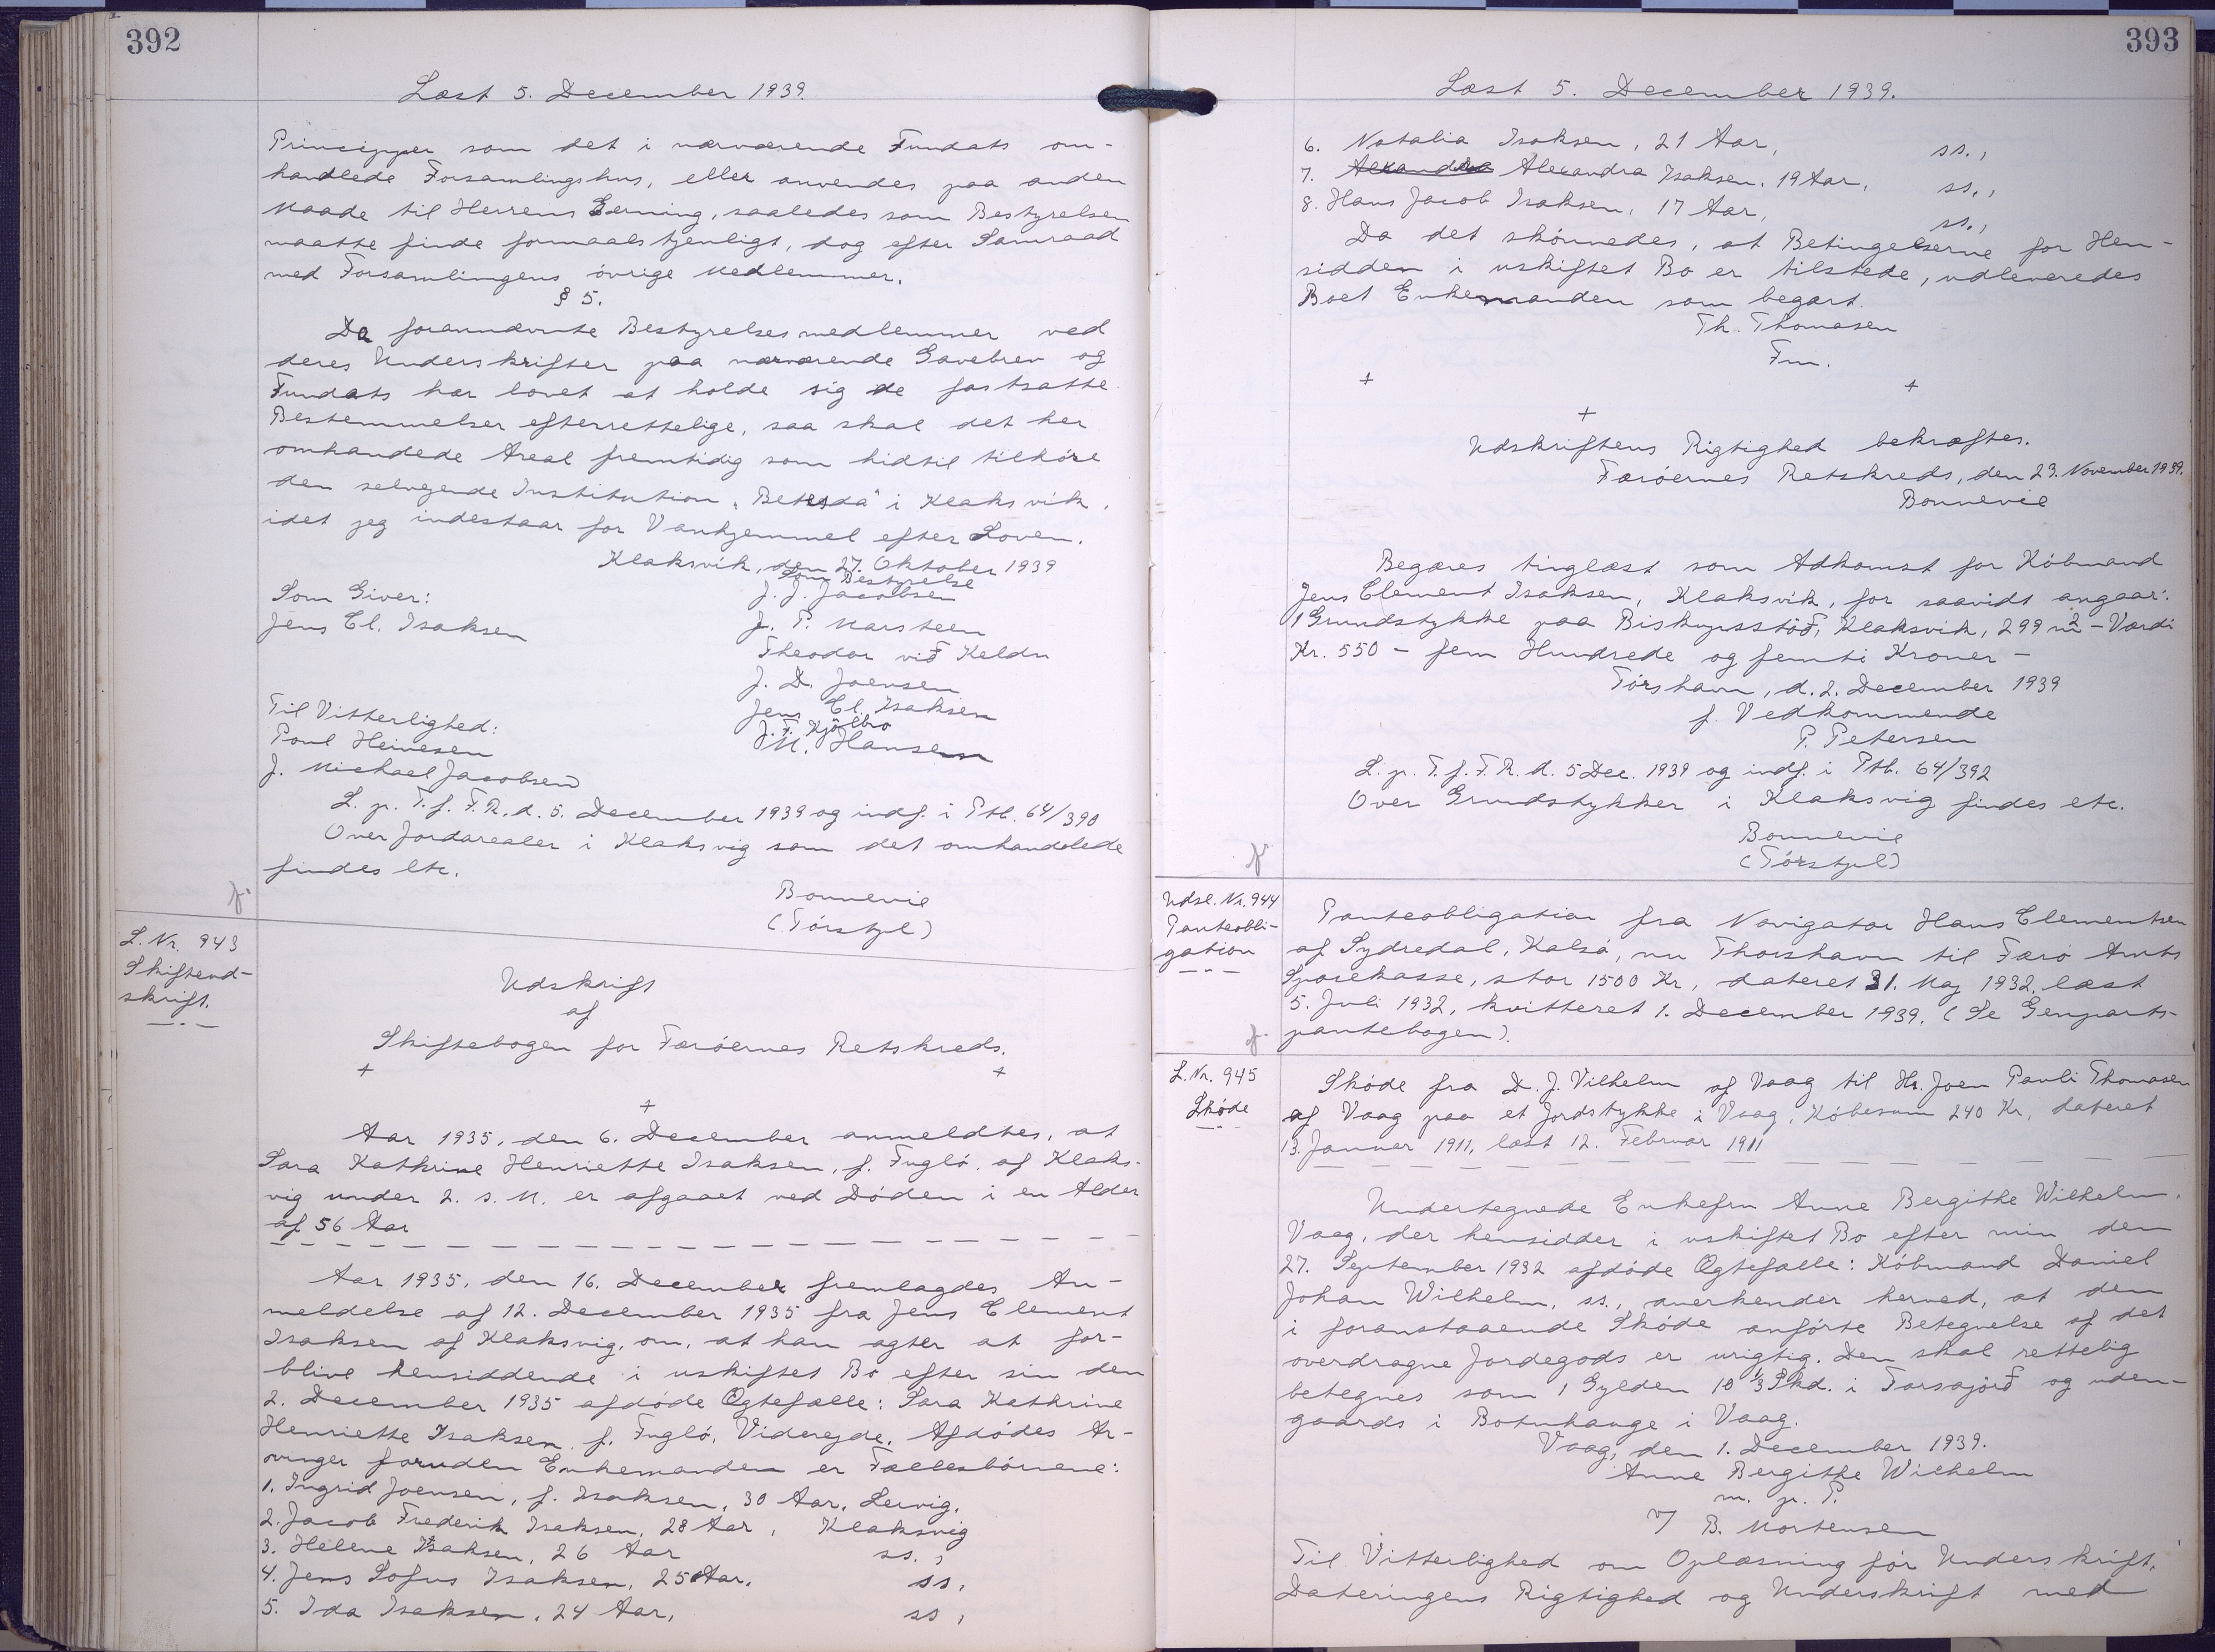 392
Læst 5. December 1939.
Principper som det i nærværende Fundats om-
handlede Forsamlingshus, eller anvendes paa anden
Maade til Herrens Gerning, saaledes som Bestyrelsen
maatte finde formaalstjenligt, dog efter Samraad
med Forsamlingens övrige Medlemmer.
§ 5.
Da forannævnte Bestyrelsesmedlemmer ved
deres Underskrifter paa nærværende Gavebrev og
Fundats har lovet at holde sig de fastsatte
Bestemmelser efterrettelige, saa skal det her
omhandede Areal fremtidig som hidtil tilhöre
den selvejende Institution "Betesda" i Klaksvik,
idet jeg indestaar for Vanhjemmel efter Loven.
Klaksvik, den 27. Oktober 1939
Som Bestyrelse
Som Giver:
J. J. Jacobsen
Jens Cl. Isaksen
J. P. Marsteen
Theodor við Keldu
J. D. Joensen
Jens Cl. Isaksen
Til Vitterlighed:
J. F. Kjölbro
Poul Heinesen
M. Hansen
J. Michael Jacobsen
L. p. T. f. F. R. d. 5. December 1939 og indf. i Ptb. 64/390
Over Jordarealer i Klaksvig som det omhandlede
findes etc.
Bonnevie
(Tórstpl)
L. Nr. 943
Skifteud-
skrift.
Udskrift
af
Skiftebogen for Færöernes Retskreds.
+ +
+
Aar 1935, den 6. December anmeldtes, at
Sara Kathrine Henriette Isaksen, f. Fuglö, af Klaks-
vig under 2. s. M. er afgaaet ved Döden i en Alder
af 56 Aar
Aar 1935, den 16. December fremlagdes An-
meldelse af 12. December 1935 fra Jens Clement
Isaksen af Klaksvig, om, at han agter at for-
blive hensiddende i uskiftet Bo efter sin den
2. December 1935 afdöde Ægtefælle: Sara Kathrine
Henriette Isaksen f. Fuglö, Viderejde. Afdödes Ar-
vinger foruden Enkemanden er Fællesbörnene:
1. Ingrid Joensen, f. Isaksen, 30 Aar, Lervig,
2. Jacob Frederik Isaksen, 28 Aar, Klaksvig
3. Helene Isaksen, 26 Aar ss.,
4. Jens Sofus Isaksen, 25 Aar, ss,
5. Ida Isaksen, 24 Aar, ss,
393
Læst 5. December 1939.
6. Natalia Isaksen, 21 Aar, ss.,
7. Alexandra Isaksen, 19 Aar, ss.,
8. Hans Jacob Isaksen, 17 Aar, ss.,
Da det skönnedes, at Betingelserne for Hen-
sidden i uskiftet Bo er tilstede, udleveredes
Boet Enkemanden som begært.
Th. Thomasen
Fm.
+ +
+
Udskriftens Rigtighed bekræftes.
Færöernes Retskreds, den 23. November 1939.
Bonnevie
Begæres tinglæst som Adkomst for Köbmand
Jens Clement Isaksen, Klaksvik, for saavidt angaar:
1 Grundstykke paa Biskupsstöð, Klaksvik, 299 m2 - Værdi
Kr. 550 - fem Hundrede og femti Kroner -
Tórshavn, d. 2. December 1939
f. Vedkommende
P. Petersen
L. p. T. f. F. R. d. 5 Dec. 1939 og indf. i Ptb. 64/392
Over Grundstykker i Klaksvig findes etc.
Bonnevie
(Tórstpl)
Udsl. Nr. 944
Panteobli-
gation
Panteobligation fra Navigatør Hans Clementsen
af Sydredal, Kalsö, nu Thorshavn til Færö Amts
Sparekasse, stor 1500 Kr, dateret 31. Maj 1932, læst
5. Juli 1932, kvitteret 1. December 1939. (Se Genparts-
pantebogen).
L. Nr. 945
Sköde
Sköde fra D. J. Vilhelm af Vaag til Hr. Joen Pauli Thomasen
af Vaag paa et Jordstykke i Vaag, Köbesum 240 Kr, dateret
13. Januar 1911, læst 12. Februar 1911
Undertegnede Enkefru Anne Bergithe Wilhelm,
Vaag, der hensidder i uskiftet Bo efter min den
27. September 1932 afdöde Ægtefælle: Köbmand Daniel
Johan Wilhelm, ss., anerkender herved, at den
i foranstaaende Sköde anförte Betegnelse af det
overdragne Jordegods er urigtig. Den skal rettelig
betegnes som 1 Gylden 10 1/3 Skd. i Tarsajörð og uden-
gaards i Botnhauge i Vaag.
Vaag, den 1. December 1939.
Anne Bergithe Wilhelm
m. p. P.
v/ B. Mortensen
Til Vitterlighed om Oplæsning för Underskrift,
Dateringens Rigtighed og Underskrift med